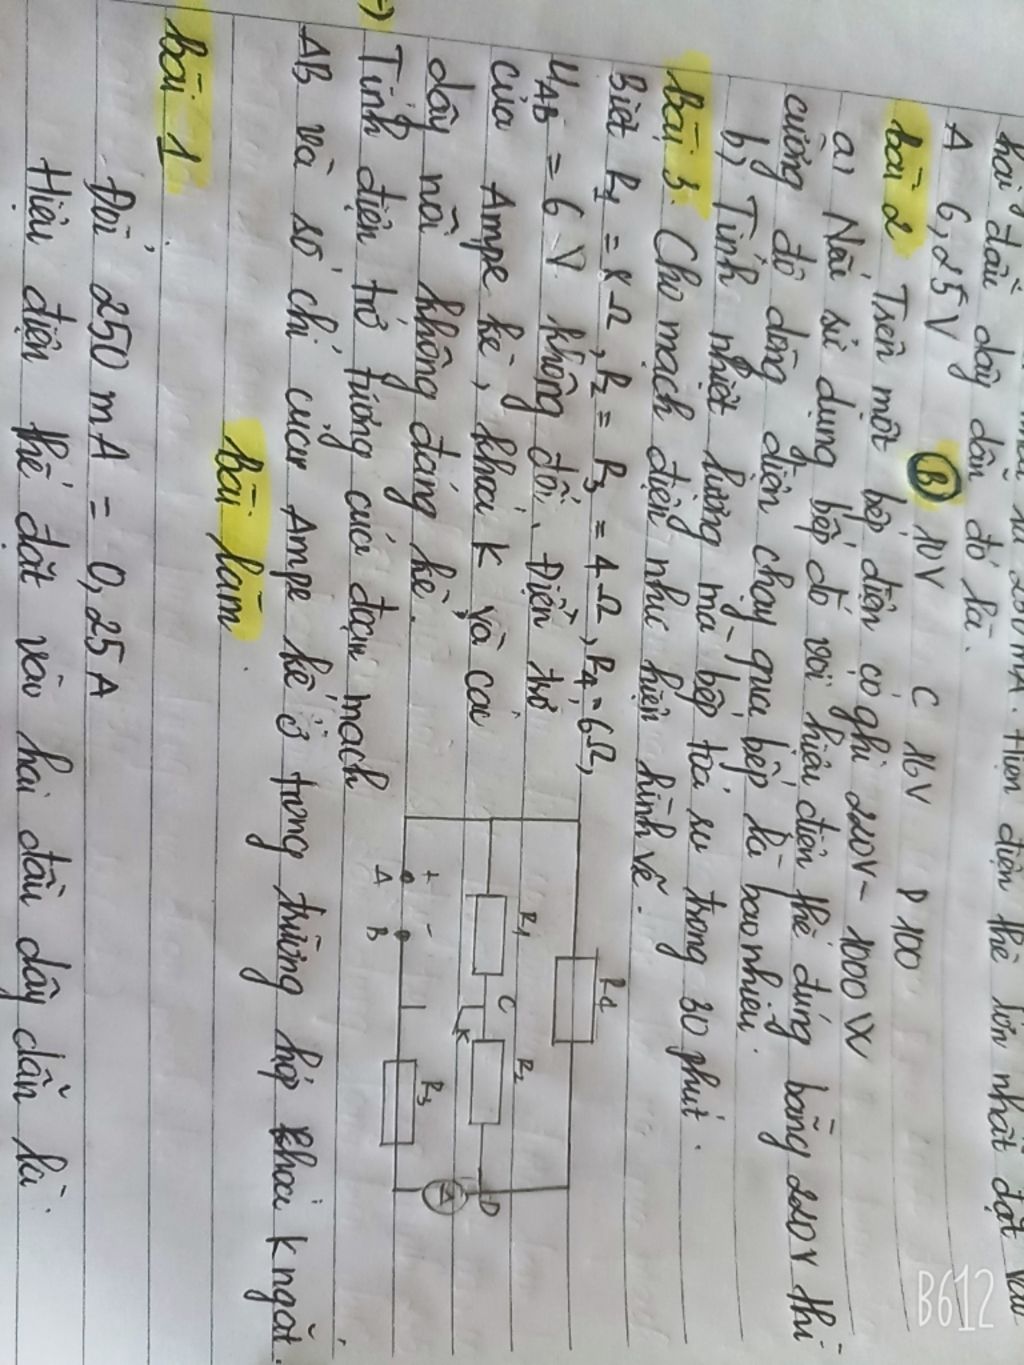 hai đầu dây dẫn đó là.
A 6,25V B 10V C 16V D 100
bài 2 Trên một bếp điện có ghi 220V - 1000W
a) Nếu sử dụng bếp đó với hiệu điện thế đúng bằng 220V thì
cường độ dòng điện chạy qua bếp là bao nhiêu.
b) Tính nhiệt lượng mà bếp toả ra trong 30 phút.
bài 3. Cho mạch điện như hiện hình vẽ.
Biết R1 = 8Ω, R2 = R3 = 4Ω, R4 = 6Ω,
UAB = 6V không đổi. Điện trở
của Ampe kế, khoá K và các
dây nối không đáng kể.
Tính điện trở tương của đoạn mạch
AB và số chỉ của Ampe kế ở trong trường hợp khoá K ngắt.
R4
R1 C R2
K D
A
+ - R3
A B
bài làm.
bài 1.
Đổi 250 mA = 0,25A
Hiệu điện thế đặt vào hai đầu dây dẫn là.
B612